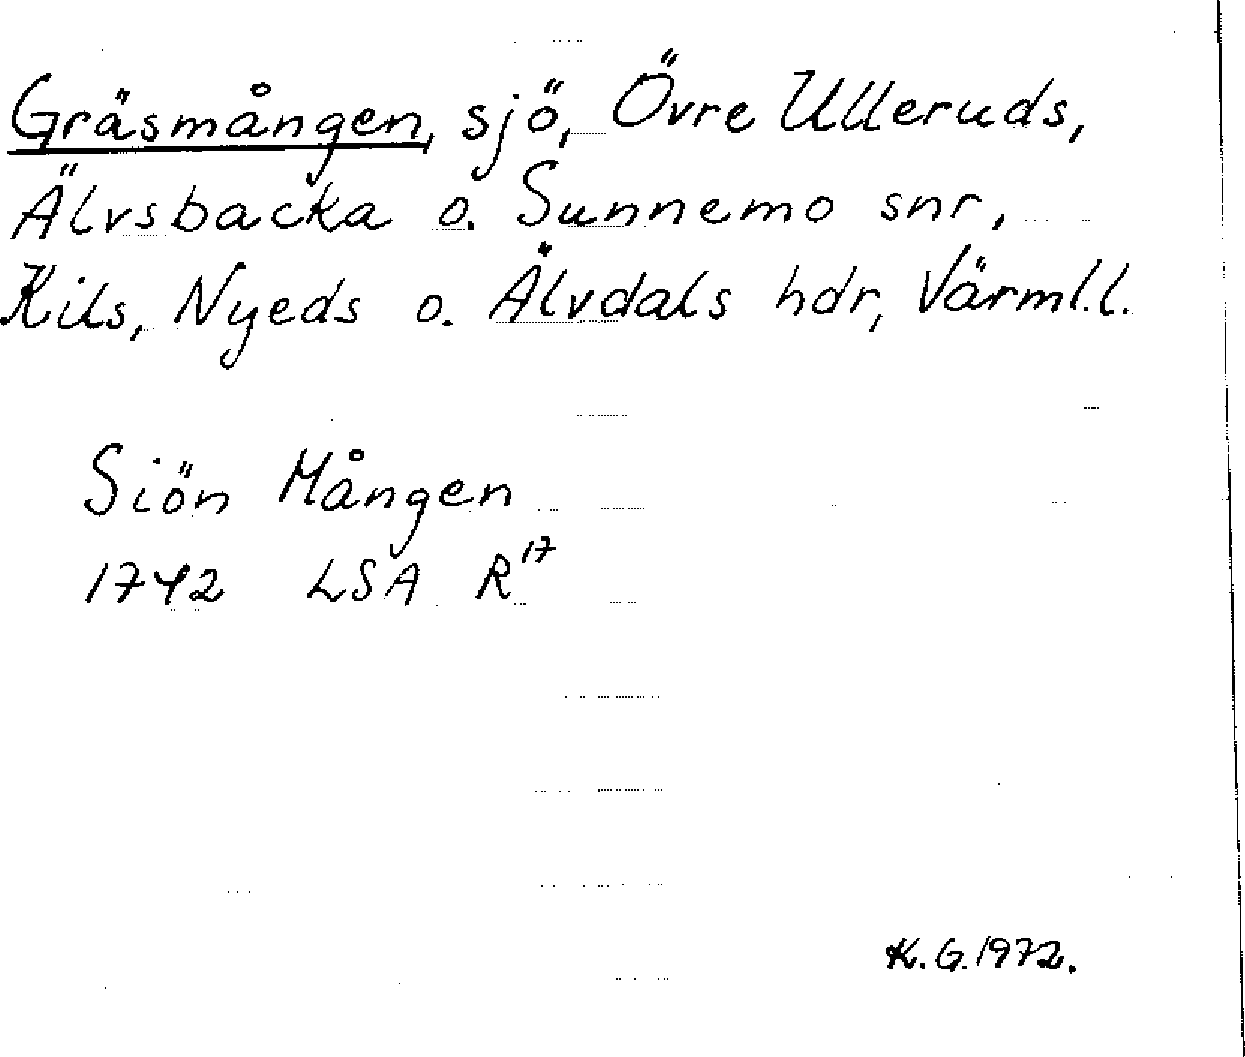 Gräsmången, sjö, Övre Ulleruds,
Älvsbacka o. Sunnemo snr,
Kils, Nyeds o. Älvdals hdr, Värml.l.
Siön Mången
1742 LSA R17
K.G.1972.